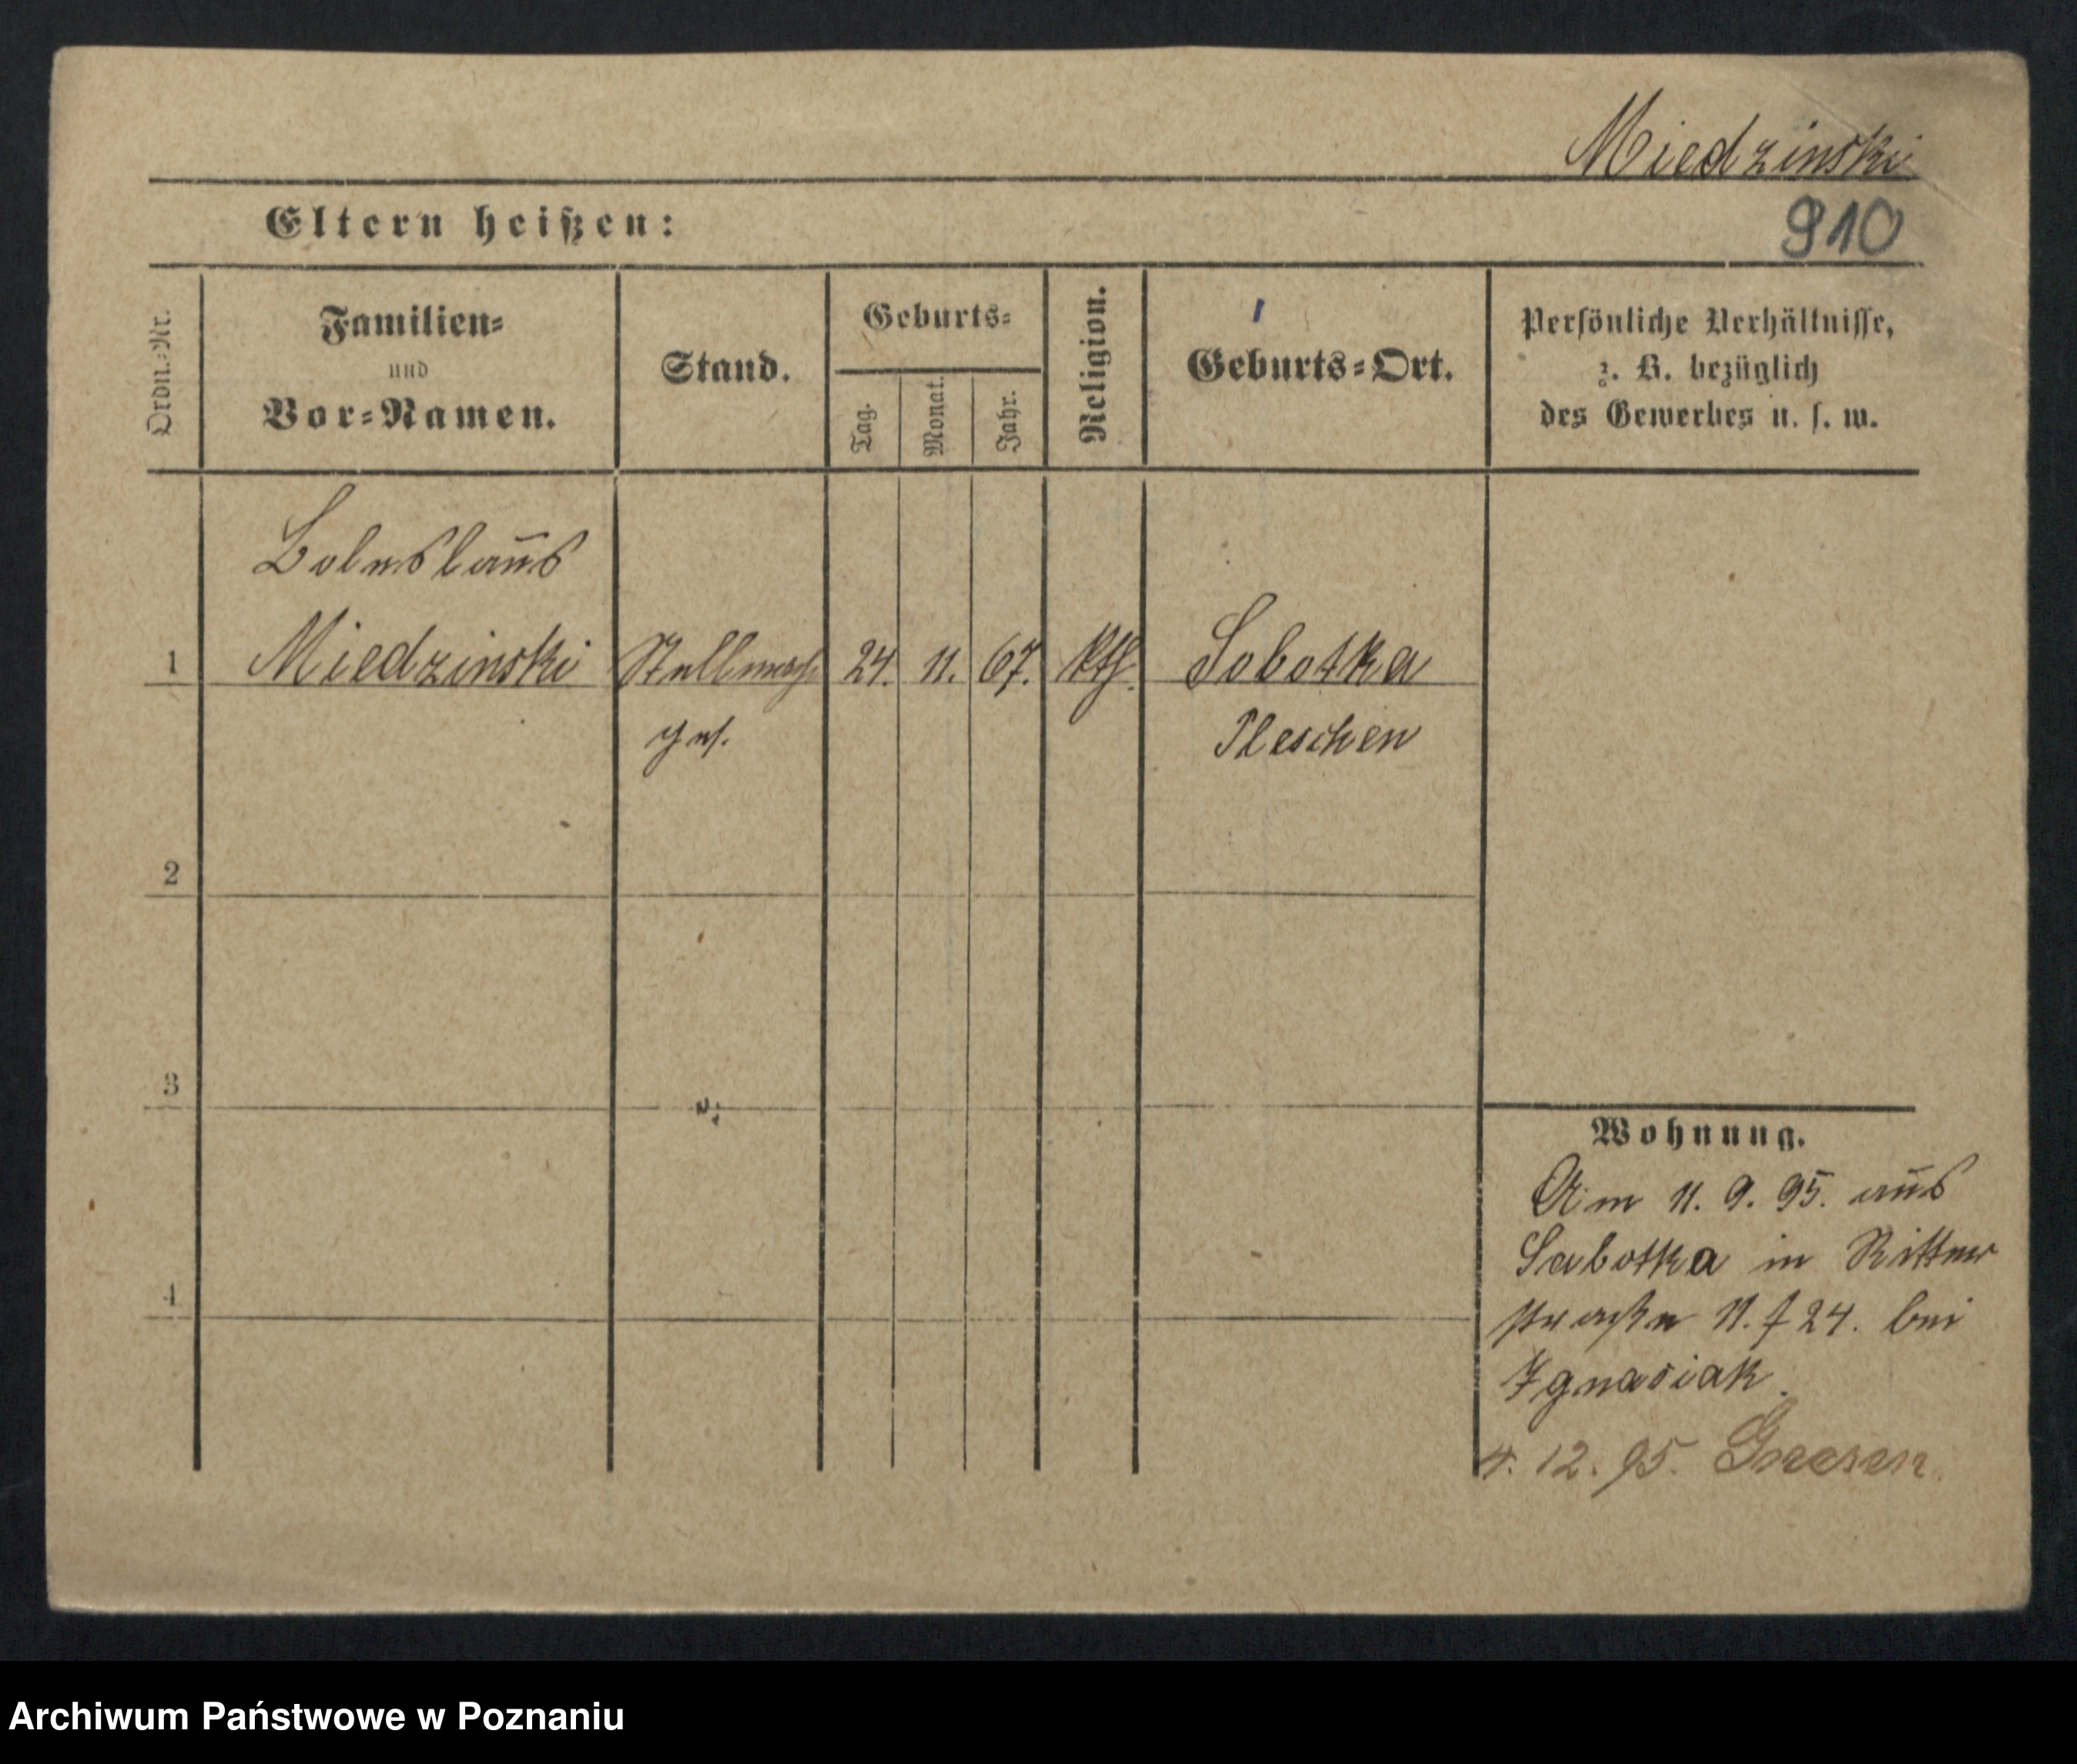 Miedzinski
Eltern heißen:
910
Ordn.=Nr.
Familien=
und
Vor=Namen.
Stand.
Geburts=
Tag.
Monat.
Jahr.
Religion.
Geburts=Ort.
Persönliche Verhältnisse,
z. B. bezüglich
des Gewerbes u. s. w.
Boleslaus
1 Miedzinski Stellmach 24. 11. 67. kth. Sobotka
ges. Pleschen
2
3
4
Wohnung.
Am 11. 9. 95. aus
Sabotka in Ritter
straße 11. f 24. bei
Ignasiak.
4. 12. 95. Gnesen.
Archiwum Państwowe w Poznaniu